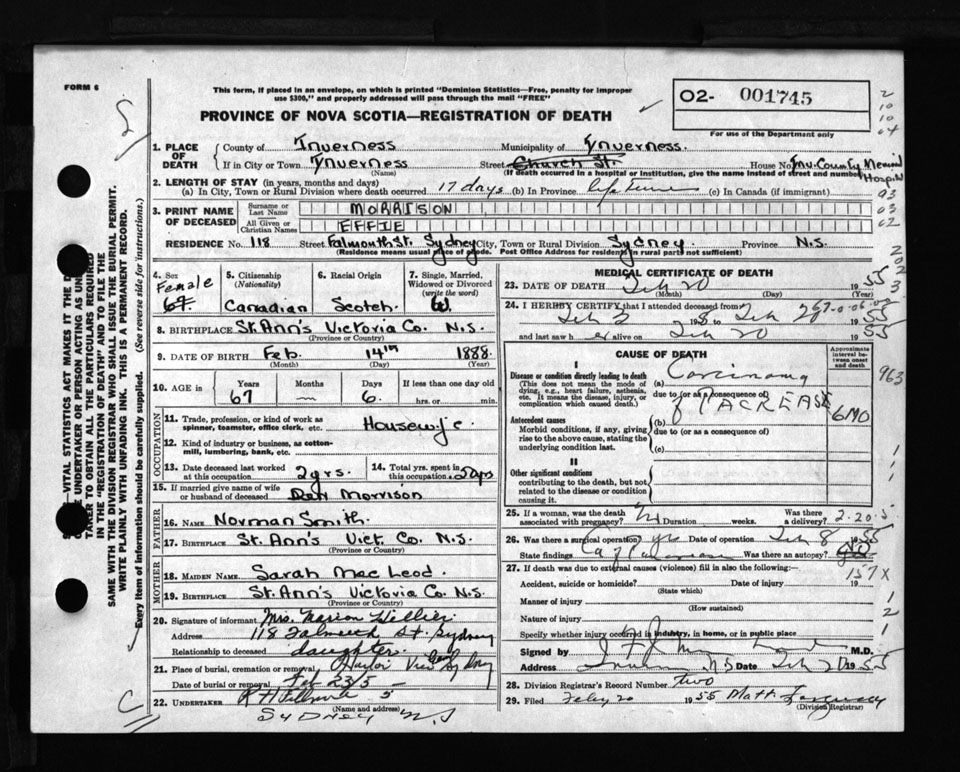 FORM 6
This form, if placed in an envelope, on which is printed "Dominion Statistics—Free, penalty for improper
use $300," and properly addressed will pass through the mail "FREE"
O2- 001745
For use of the Department only
PROVINCE OF NOVA SCOTIA—REGISTRATION OF DEATH
1. PLACE OF DEATH County of Inverness Municipality of Inverness.
If in City or Town Inverness Street Church St. House No. Inv. County Memorial Hospital
(Name) (If death occurred in a hospital or institution, give the name instead of street and number)
2. LENGTH OF STAY (in years, months and days)
(a) In City, Town or Rural Division where death occurred 17 days (b) In Province life time (c) In Canada (if immigrant)
3. PRINT NAME OF DECEASED
Surname or Last Name MORRISON
All Given or Christian Names EFFIE
RESIDENCE No. 118 Street Falmouth St. Sydney City, Town or Rural Division Sydney. Province N.S.
(Residence means usual place of abode. Post Office Address for residency in rural parts not sufficient)
4. Sex Female
5. Citizenship (Nationality) Canadian
6. Racial Origin Scotch
7. Single, Married, Widowed or Divorced (write the word) W.
8. BIRTHPLACE St. Ann's Victoria Co. N.S.
(Province or Country)
9. DATE OF BIRTH Feb. 14th 1888.
(Month) (Day) (Year)
10. AGE in Years 67 Months — Days 6. If less than one day old hrs. or min.
OCCUPATION
11. Trade, profession, or kind of work as spinner, teamster, office clerk, etc. Housewife
12. Kind of industry or business, as cotton-mill, lumbering, bank, etc.
13. Date deceased last worked at this occupation 2 yrs.
14. Total yrs. spent in this occupation 50 yrs
15. If married give name of wife or husband of deceased Dan Morrison
FATHER
16. NAME Norman Smith.
17. BIRTHPLACE St. Ann's Vict. Co. N.S.
(Province or Country)
MOTHER
18. MAIDEN NAME Sarah MacLeod.
19. BIRTHPLACE St. Ann's Victoria Co. N.S.
(Province or Country)
20. Signature of informant Mrs. Marion Hellier
Address 118 Falmouth St. Sydney
Relationship to deceased daughter.
21. Place of burial, cremation or removal Harbor View Sydney
Date of burial or removal Feb 23/5
22. UNDERTAKER
(Name and address)
SYDNEY N.S
MEDICAL CERTIFICATE OF DEATH
23. DATE OF DEATH Feb 20 1955
(Month) (Day) (Year)
24. I HEREBY CERTIFY that I attended deceased from
Feb 3 Feb 20 1955
and last saw her alive on Feb 20 1955
CAUSE OF DEATH
Approximate interval between onset and death
I
Disease or condition directly leading to death (a) Carcinoma
(This does not mean the mode of dying, e.g., heart failure, asthenia, etc. It means the disease, injury, or complication which caused death.)
due to (or as a consequence of)
Antecedent causes (b) of PACREASE 6 MO
Morbid conditions, if any, giving rise to the above cause, stating the underlying condition last.
due to (or as a consequence of)
(c)
II
Other significant conditions contributing to the death, but not related to the disease or condition causing it.
25. If a woman, was the death associated with pregnancy? No Duration weeks. Was there a delivery? 2.20.5
26. Was there a surgical operation? yes Date of operation Feb 8 1955
State findings Ca of Was there an autopsy? No
27. If death was due to external causes (violence) fill in also the following:— 157X
Accident, suicide or homicide? Date of injury 19
(State which)
Manner of injury
(How sustained)
Nature of injury
Specify whether injury occurred in industry, in home, or in public place
Signed by M.D.
Address N S Date Feb 20 1955
28. Division Registrar's Record Number two
29. Filed Feby 20 1955 Matt.
(Division Registrar)
SAME WITH THE DIVISION REGISTRAR WHO SHALL ISSUE THE BURIAL PERMIT.
WRITE PLAINLY WITH UNFADING INK. THIS IS A PERMANENT RECORD.
Every item of information should be carefully supplied. (See reverse side for instructions.)
963